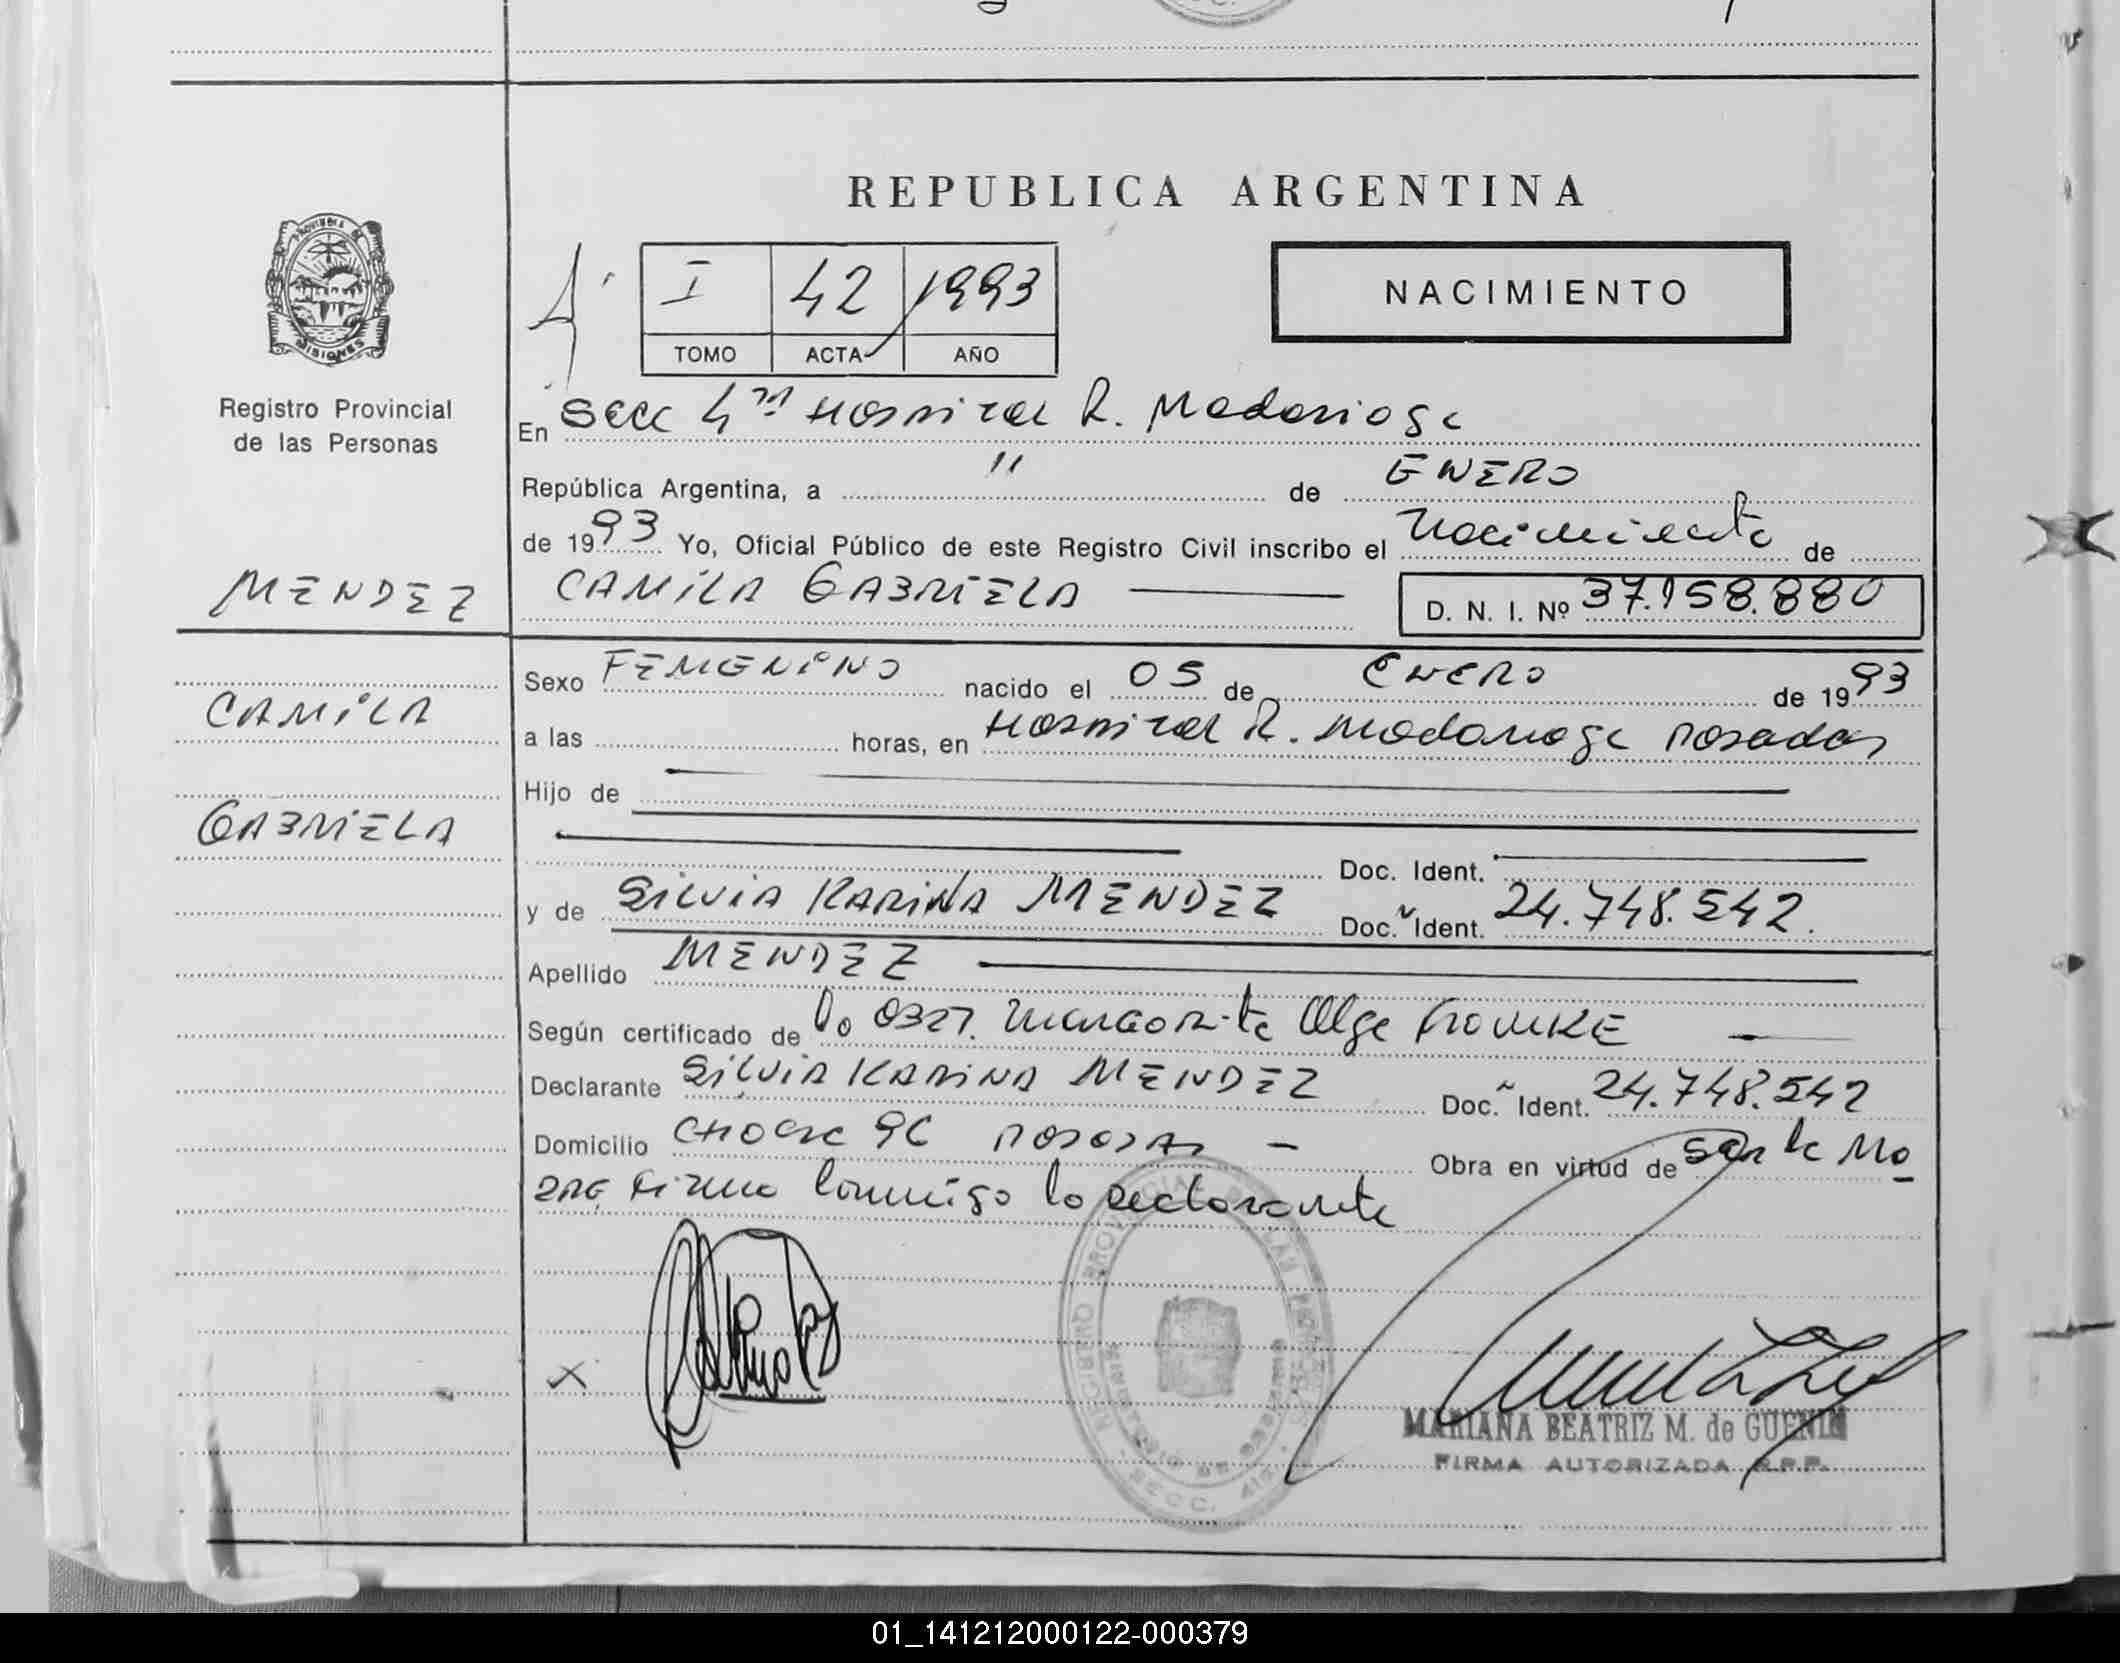 REPUBLICA ARGENTINA
PROVINCIA DE
MISIONES
Registro Provincial
de las Personas
I 42 1993
TOMO ACTA AÑO
NACIMIENTO
En Secc 4ta Hospital R. Madariaga
República Argentina, a " de ENERO
de 1993 Yo, Oficial Público de este Registro Civil inscribo el Nacimiento de
MENDEZ
CAMILA GABRIELA
D. N. I. Nº 37.158.880
CAMILA
GABRIELA
Sexo FEMENINO nacido el 05 de ENERO de 1993
a las horas, en Hospital R. Madariaga Posadas
Hijo de
Doc. Ident.
y de SILVIA KARINA MENDEZ Doc. Ident. 24.748.542.
Apellido MENDEZ
Según certificado de la Obst. Margarita Olga
Declarante SILVIA KARINA MENDEZ Doc. Ident. 24.748.542
Domicilio 96 POSADAS - Obra en virtud de ser la Ma
dre firma conmigo la declarante
X
REGISTRO PROVINCIAL DE LAS PERSONAS
SECC. 4ta.
MARIANA BEATRIZ M. de GUENIN
FIRMA AUTORIZADA R.P.P.
01_141212000122-000379